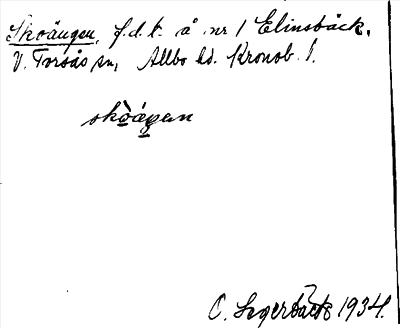 Skoängen, f.d.t. å nr 1 Elinsbäck,
V. Torsås sn, Allbo hd. Kronob. l.
skòáŋen
O. Lagerbäck 1934.